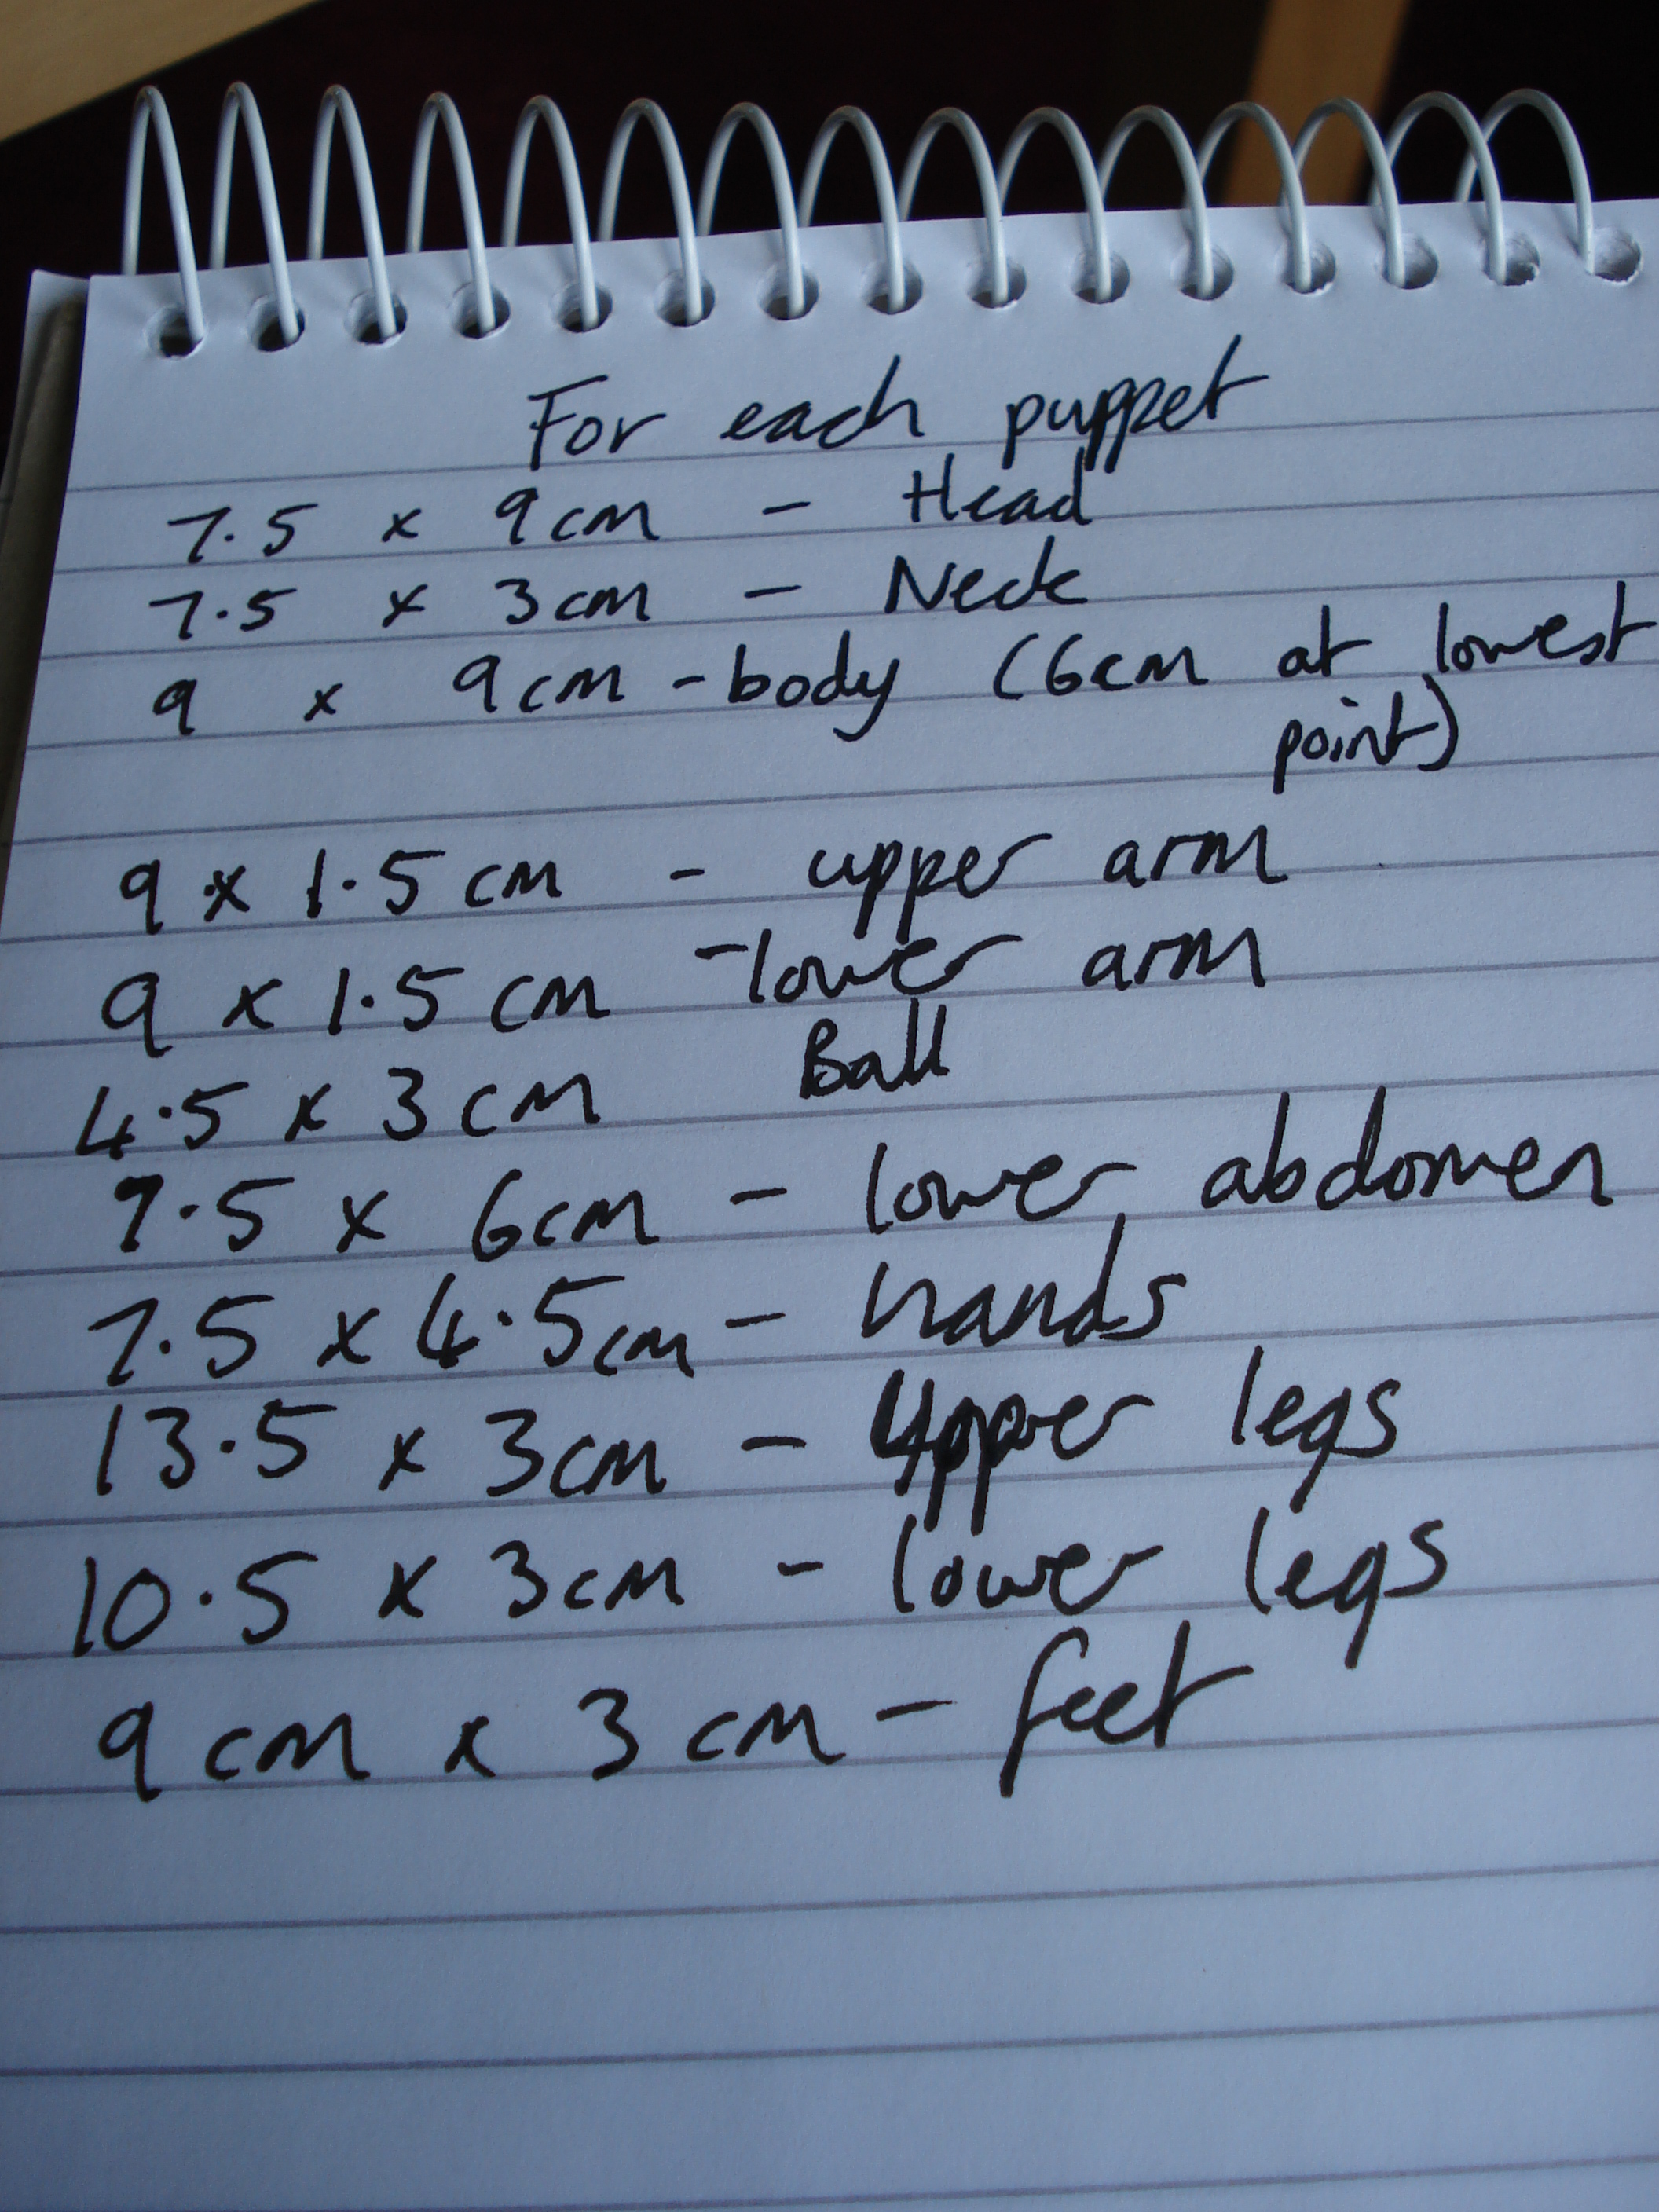 For each puppet
7.5 x 9cm - Head
7.5 x 3cm - Neck
9 x 9cm - body (6cm at lowest
point)
9 x 1.5cm - upper arm
9 x 1.5cm - lower arm
4.5 x 3cm Ball
7.5 x 6cm - lower abdomen
7.5 x 4.5cm - hands
13.5 x 3cm - Upper legs
10.5 x 3cm - lower legs
9cm x 3cm - feet